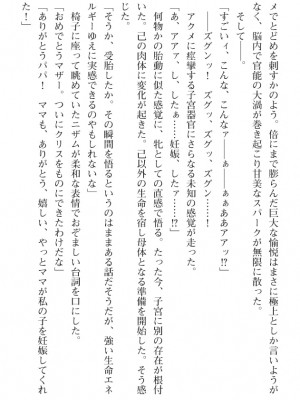 メでとどめを刺すかのよう。倍にまで膨らんだ巨大な愉悦はまさに極上としか言いようが
なく、脳内で官能の大渦が巻き起こり甘美なスパークが無限に散った。
そして。
「すごいィ、こんな、こんなァ――ぁ――ぁぁああアアッ!?」
――ズグンッ！　ズグッ、ズグッ、ズグン――！
アクメに痙攣する子宮器官にさらなる未知の感覚が走った。
「あ、アアァ、し、したぁ……妊娠、したァ……!?」
何物かの胎動に似た感覚に、牝としての直感で悟る。たった今、子宮に別の存在が根付
いた。己の肉体に変化が起きた。己以外の生命を宿し母体となる準備を開始した。そう感
じた。
「そうか、受胎したか。その瞬間を悟るというのはままある話だそうだが、強い生命エネ
ルギーゆえに実感できるのやもしれないな」
椅子に座って眺めていたニザムが柔和な表情でおぞましい台詞を口にした。
「おめでとうマザー。ついにクリスをものにできたわけだな」
「ありがとうパパ！　ママも、ありがとう、嬉しい、やっとママが私の子を妊娠してくれ